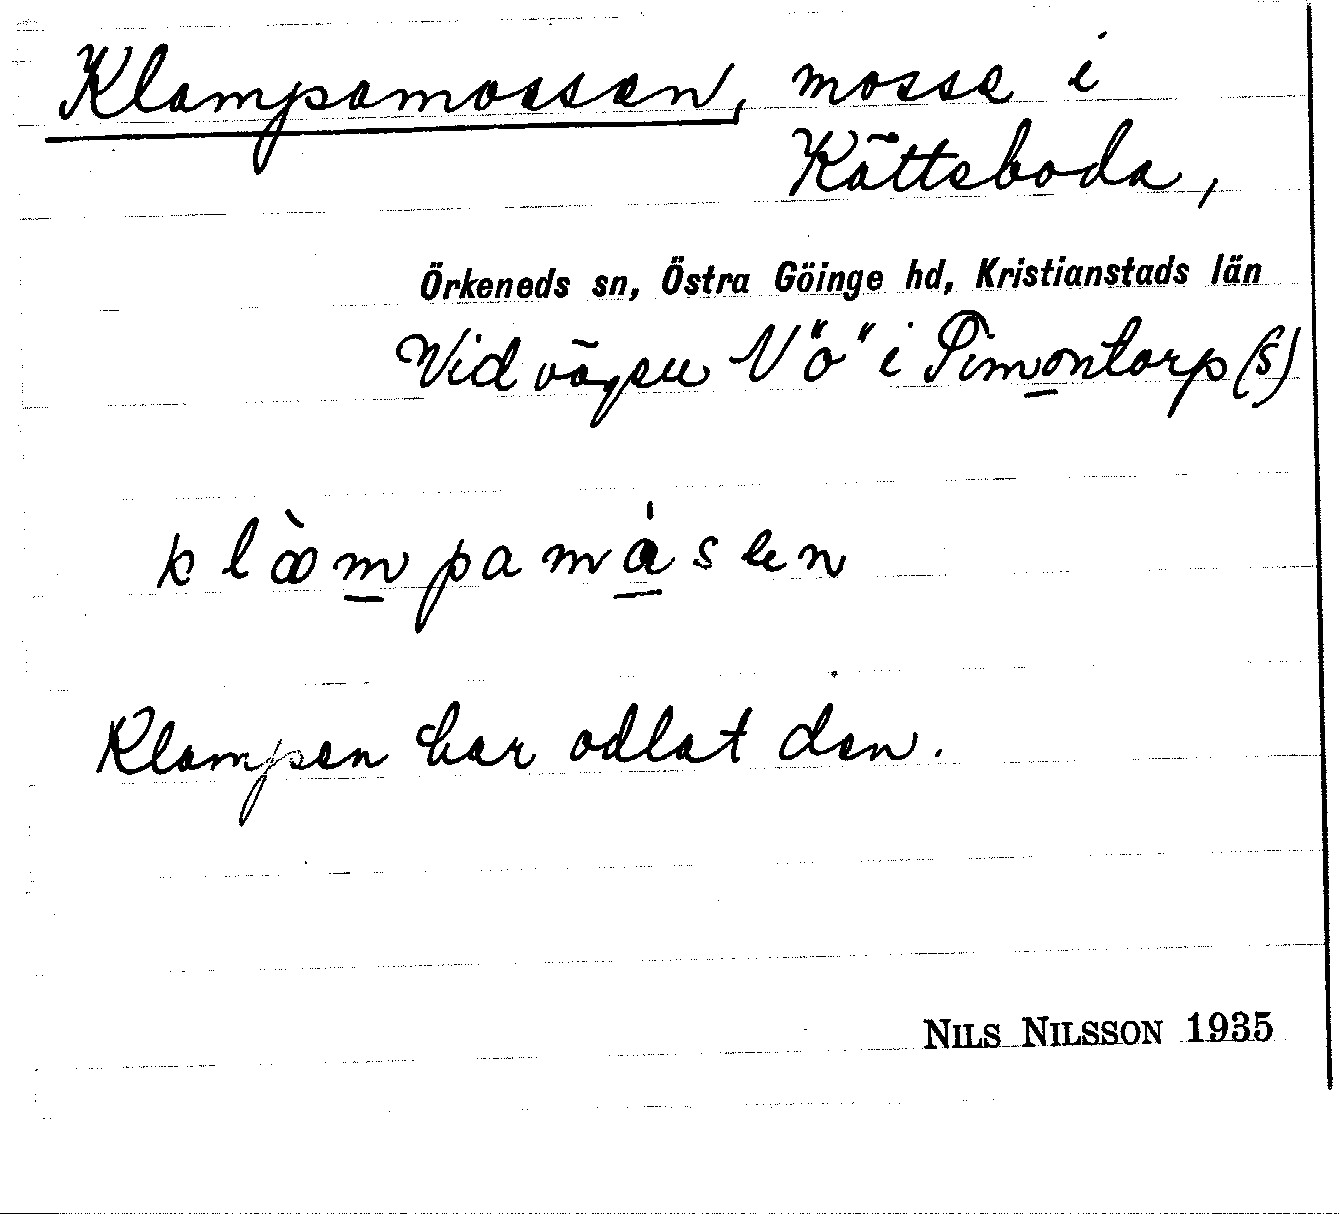 Klampamossen, mosse i
Kättseboda,
Örkeneds sn, Östra Göinge hd, Kristianstads län
Vid vägen V "o" i Timontorp (S)
klàmpamåsen
Klampen har odlat den.
NILS NILSSON 1935